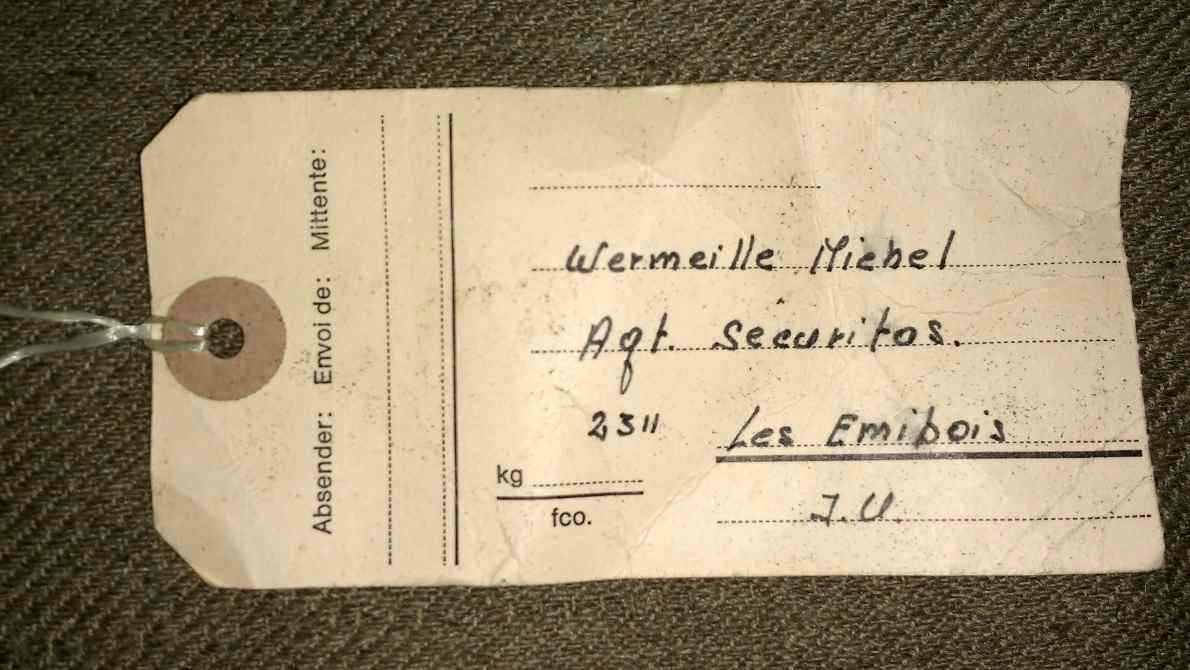 Absender: Envoi de: Mittente:
Wermeille Michel
Agt. Sécuritas.
2311 Les Emibois
kg
fco.
J.U.